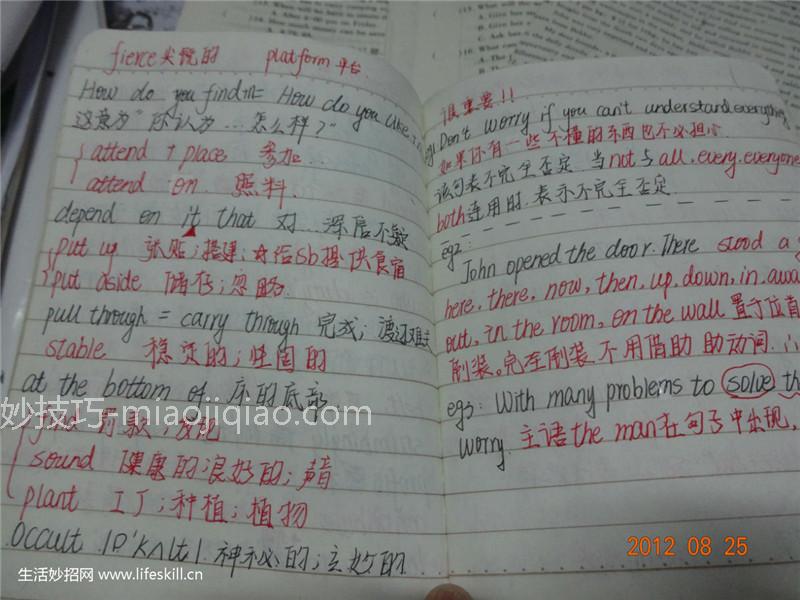 fierce 尖锐的 platform 平台
How do you find sth = How do you like
这意为"你认为...怎么样?"
attend + place 参加...
attend on 照料.
depend on it that 对...深信不疑
put up 张贴;搭建;为sb提供食宿
put aside 储存;忽略.
pull through = carry through 完成;渡过难关
stable 稳定的;牢固的
at the bottom of. 在...的底部
sound 健康的良好的;声音
plant 工厂;种植;植物
occult 神秘的;玄妙的
很重要!!
eg Don't worry if you can't understand everything
如果你有一些不懂的东西也不必担心
该句表不完全否定. 当not与all.every.everyone
both连用时.表示不完全否定.
eg2:
John opened the door. There stood a
here, there, now, then, up, down, in, away
out, in the room, on the wall 置于位首
倒装.完全倒装 不用借助 助动词.
eg3: With many problems to solve th
worry. 主语the man在句子中出现,
2012 08 25
妙技巧-miaojiqiao.com
生活妙招网 www.lifeskill.cn